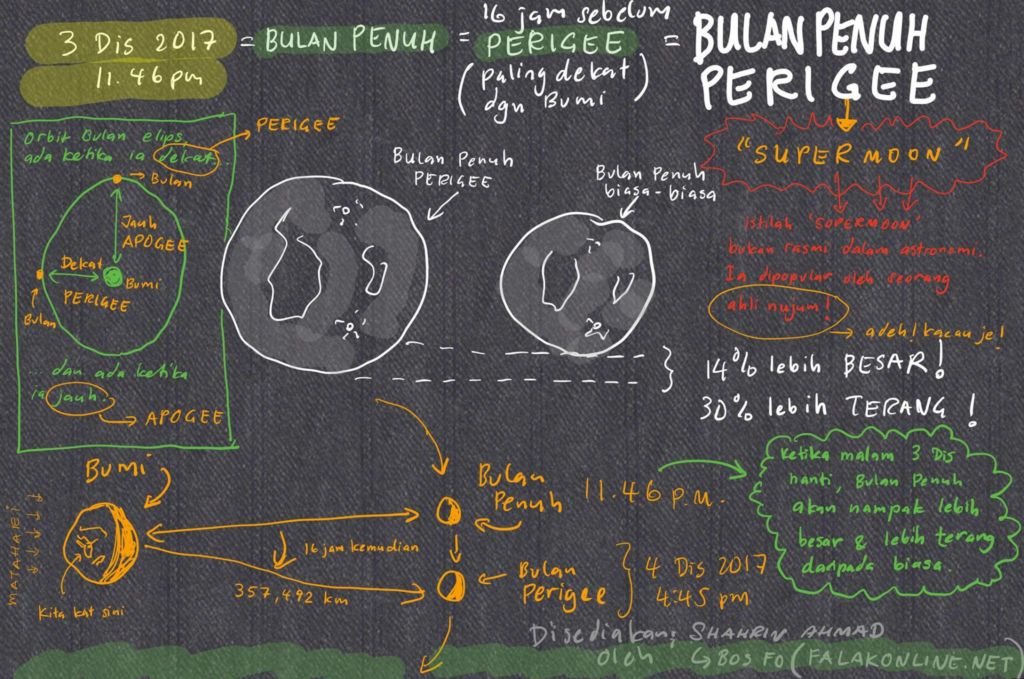 3 Dis 2017
11.46 pm
= BULAN PENUH =
16 jam sebelum
PERIGEE
(paling dekat
dgn Bumi)
= BULAN PENUH
PERIGEE
"SUPERMOON"
istilah 'SUPERMOON'
bukan rasmi dalam astronomi.
Ia dipopular oleh seorang
ahli nujum!
adeh! kacau je!
orbit Bulan elips,
ada ketika ia dekat...
PERIGEE
Bulan
Jauh
APOGEE
Dekat
PERIGEE
Bumi
Bulan
... dan ada ketika
ia jauh.
APOGEE
Bulan Penuh
PERIGEE
Bulan Penuh
biasa-biasa
14% lebih BESAR!
30% lebih TERANG!
Ketika malam 3 Dis
nanti, Bulan Penuh
akan nampak lebih
besar & lebih terang
daripada biasa.
BUMI
MATAHARI
Kita kat sini
16 jam kemudian
357,492 km
Bulan
Penuh
11.46 p.m.
Bulan
Perigee
4 Dis 2017
4:45 pm
Disediakan; SHAHRIN AHMAD
oleh
BOS FO (FALAKONLINE.NET)